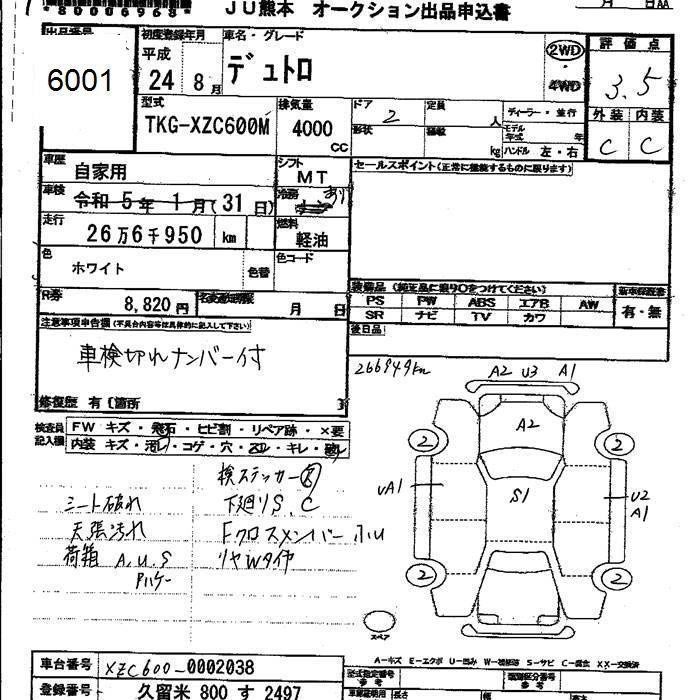 *80006968*
JU熊本 オークション出品申込書
月 日AA
出品番号
6001
初度登録年月
平成
24 8月
車名・グレード
デュトロ
2WD
・
4WD
評価点
3.5
外装 内装
C C
型式
TKG-XZC600M
排気量
4000
CC
ドア
2
定員
人
形状
積載
kg
ディーラー・並行
モデル年式 年
ハンドル 左・右
車歴
自家用
シフト
MT
セールスポイント(正常に機能するものに限ります)
車検
令和 5年 1月(31日)
冷房
あり
走行
26万6千950 km
燃料
軽油
色
ホワイト
色替
色コード
R券
8,820円
名変期限
月 日
装備品 (純正品に限り○をつけてください)
PS PW ABS エアB AW
SR ナビ TV カワ
新車保証書
有・無
後日品
注意事項申告欄(不具合内容等は具体的に記入して下さい)
車検切れナンバー付
修復歴 有(箇所
検査員記入欄
FW キズ・飛石・ヒビ割・リペア跡・×要
内装 キズ・汚レ・コゲ・穴・スレ・キレ・破レ
266949km
A2 U3 A1
A2
2 2
UA1
S1
U2
A1
2 2
検ステッカー
シート破れ
下廻りS、C
天張汚れ
Fクロスメンバー
荷箱 A、U、S
リヤWタイヤ
スペア
A-キズ E-エクボ U-凹み W-補修跡 S-サビ C-腐食 XX-交換済
車台番号
XZC600-0002038
型式指定番号
参考
類別区分番号
参考
登録番号
久留米 800 す 2497
長さ
幅
高さ